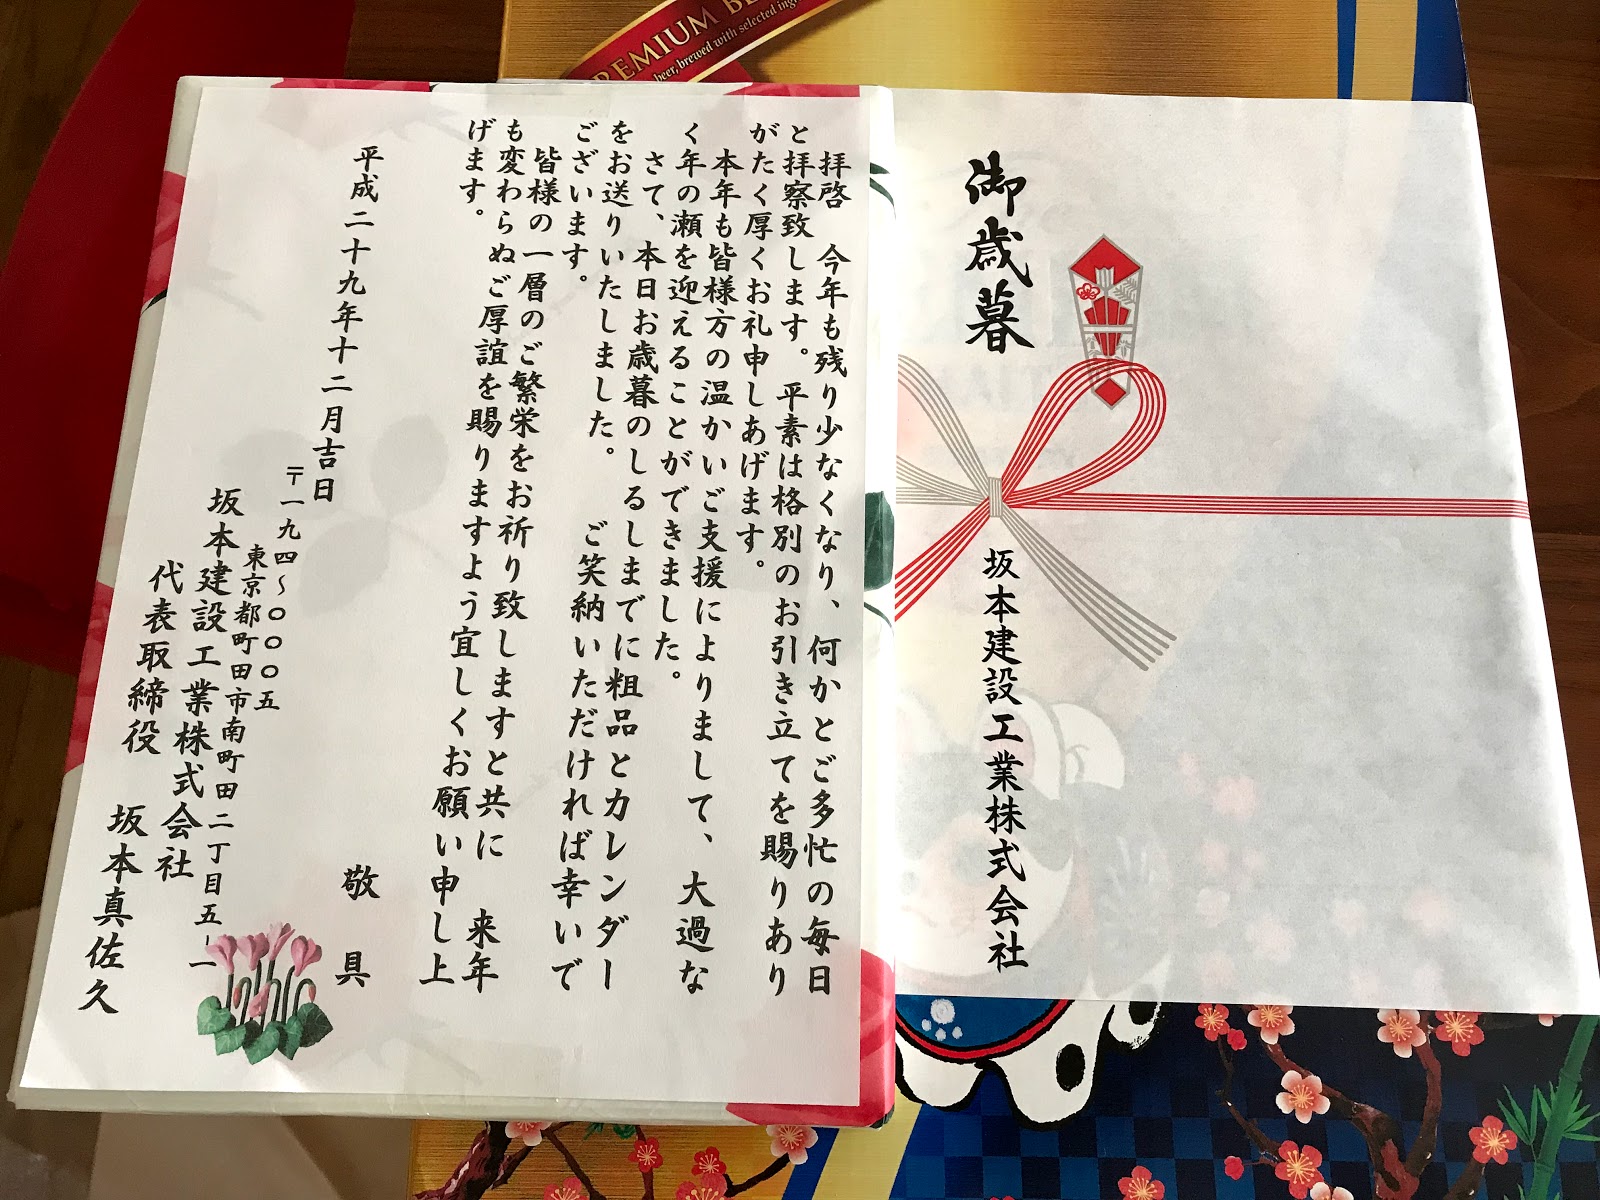 御歳暮
坂本建設工業株式会社
拝啓　今年も残り少なくなり、何かとご多忙の毎日
と拝察致します。平素は格別のお引き立てを賜りあり
がたく厚くお礼申しあげます。
本年も皆様方の温かいご支援によりまして、大過な
く年の瀬を迎えることができました。
さて、本日お歳暮のしるしまでに粗品とカレンダー
をお送りいたしました。　ご笑納いただければ幸いで
ございます。
皆様の一層のご繁栄をお祈り致しますと共に　来年
も変わらぬご厚誼を賜りますよう宜しくお願い申し上
げます。
敬具
平成二十九年十二月吉日
〒一九四～〇〇〇五
東京都町田市南町田二丁目五-一
坂本建設工業株式会社
代表取締役　坂本真佐久
PREMIUM BE
beer, brewed with selected ing